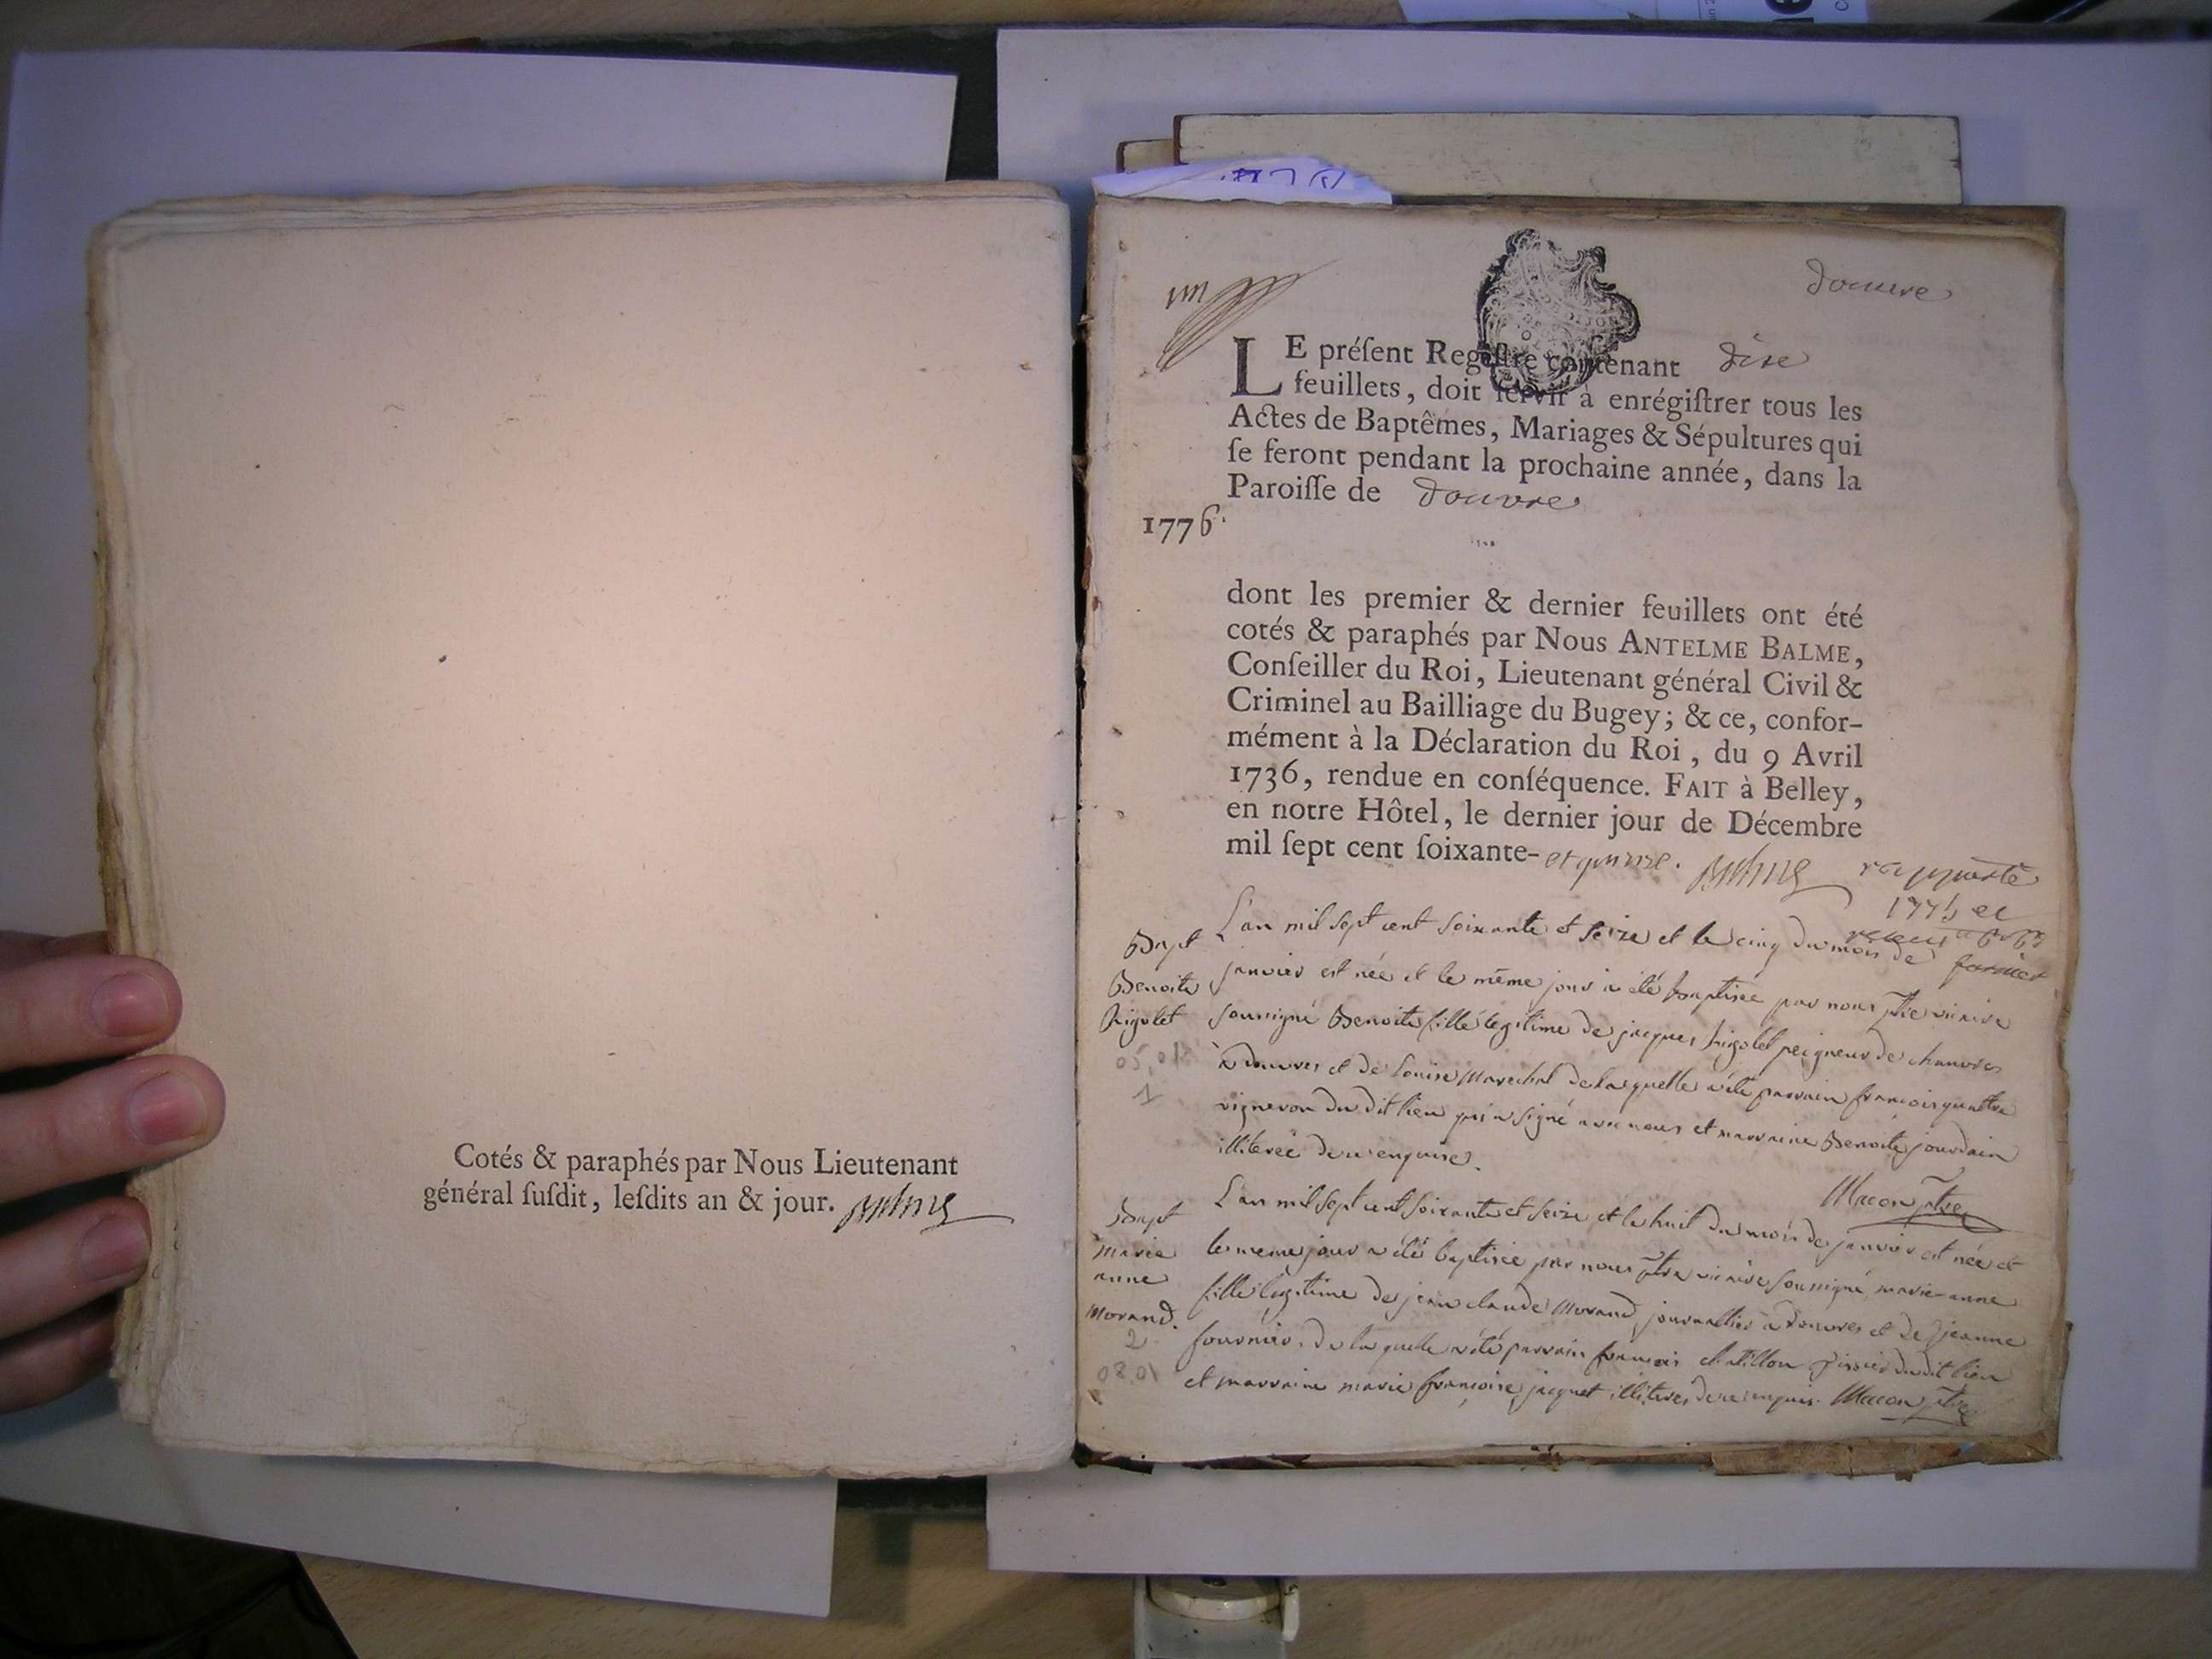 Cotés & paraphés par Nous Lieutenant
général ſuſdit, leſdits an & jour.
un
douvre
LE préſent Regiſtre contenant dixe
feuillets, doit ſervir à enrégiſtrer tous les
Actes de Baptêmes, Mariages & Sépultures qui
ſe feront pendant la prochaine année, dans la
Paroiſſe de douvre
1776.
dont les premier & dernier feuillets ont été
cotés & paraphés par Nous ANTELME BALME,
Conſeiller du Roi, Lieutenant général Civil &
Criminel au Bailliage du Bugey; & ce, confor-
mément à la Déclaration du Roi, du 9 Avril
1736, rendue en conſéquence. FAIT à Belley,
en notre Hôtel, le dernier jour de Décembre
mil ſept cent ſoixante-et quinze. Balme
Bapt
Benoite
Rigolet
05.01
1
L'an mil sept cent soixante et seize et le cinq du mois de
janvier est née et le même jour a été baptisée par nous ptre vicaire
soussigné Benoite fille legitime de jacques rigolet peigneur de chanvres
à douvres et de Louise Marechal de laquelle a été parrain francois
vigneron du dit lieu qui a signé avec nous et marraine Benoite jourdain
illiterée de ce enquise.
Macon ptre
Bapt
marie
anne
Morand.
2
08.01
L'an mil sept cent soixante et seize et le huit du mois de janvier est née et
le meme jour a été baptisée par nous ptre vicaire soussigné marie-anne
fille legitime de jean claude Morand journallier à douvres et de jeanne
fournier, de laquelle a été parrain francois chatillon dudit lieu
et marraine marie francoise jacquet illiteres de ce enquis. Macon ptre